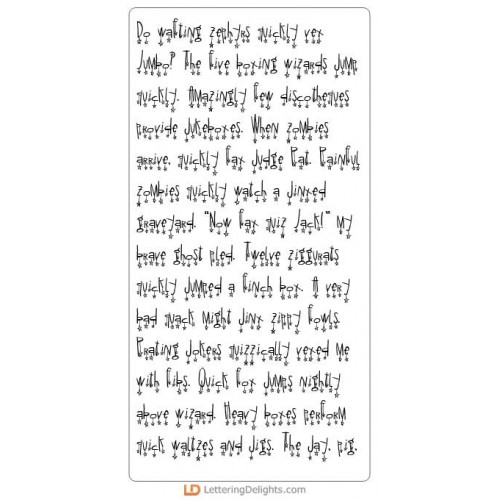 Do waltting zephyrs quickly vex
Jumbo? The five boxing wizards jump
quickly. Amazingly few discotheques
provide jukeboxes. When zombies
arrive, quickly fax Judge Pat. Painful
zombies quickly watch a jinxed
graveyard. "Now fax quiz Jack!" my
brave ghost pled. Twelve ziggurats
quickly jumped a finch box. A very
bad quack might jinx zippy fowls.
Prating jokers quizzically vexed me
with fibs. Quick fox jumps nightly
above wizard. Heavy boxes perform
quick waltzes and jigs. The jay, pig,
LD LetteringDelights.com